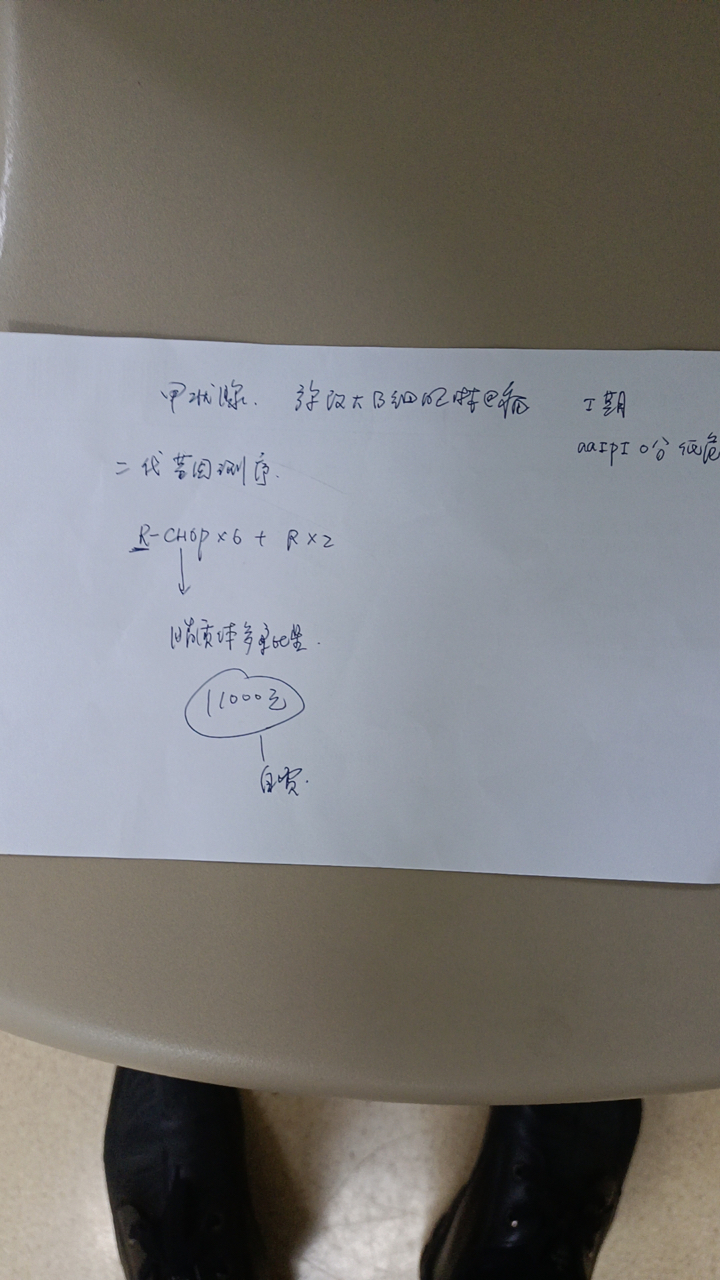 甲状腺. 弥漫大B细胞淋巴瘤 I期
aaIPI 0分 低危
二代基因测序.
R-CHOP×6 + R×2
↓
脂质体多柔比星.
11000元
自费.